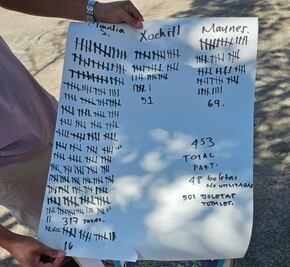 Claudia
S.
Xochitl
Maynes.
51
69.
453
TOTAL
PART.
48 boletas
NO UTILIZADAS
501 BOLETAS
TOTALES.
11 317 TOTAL.
Nulos
16